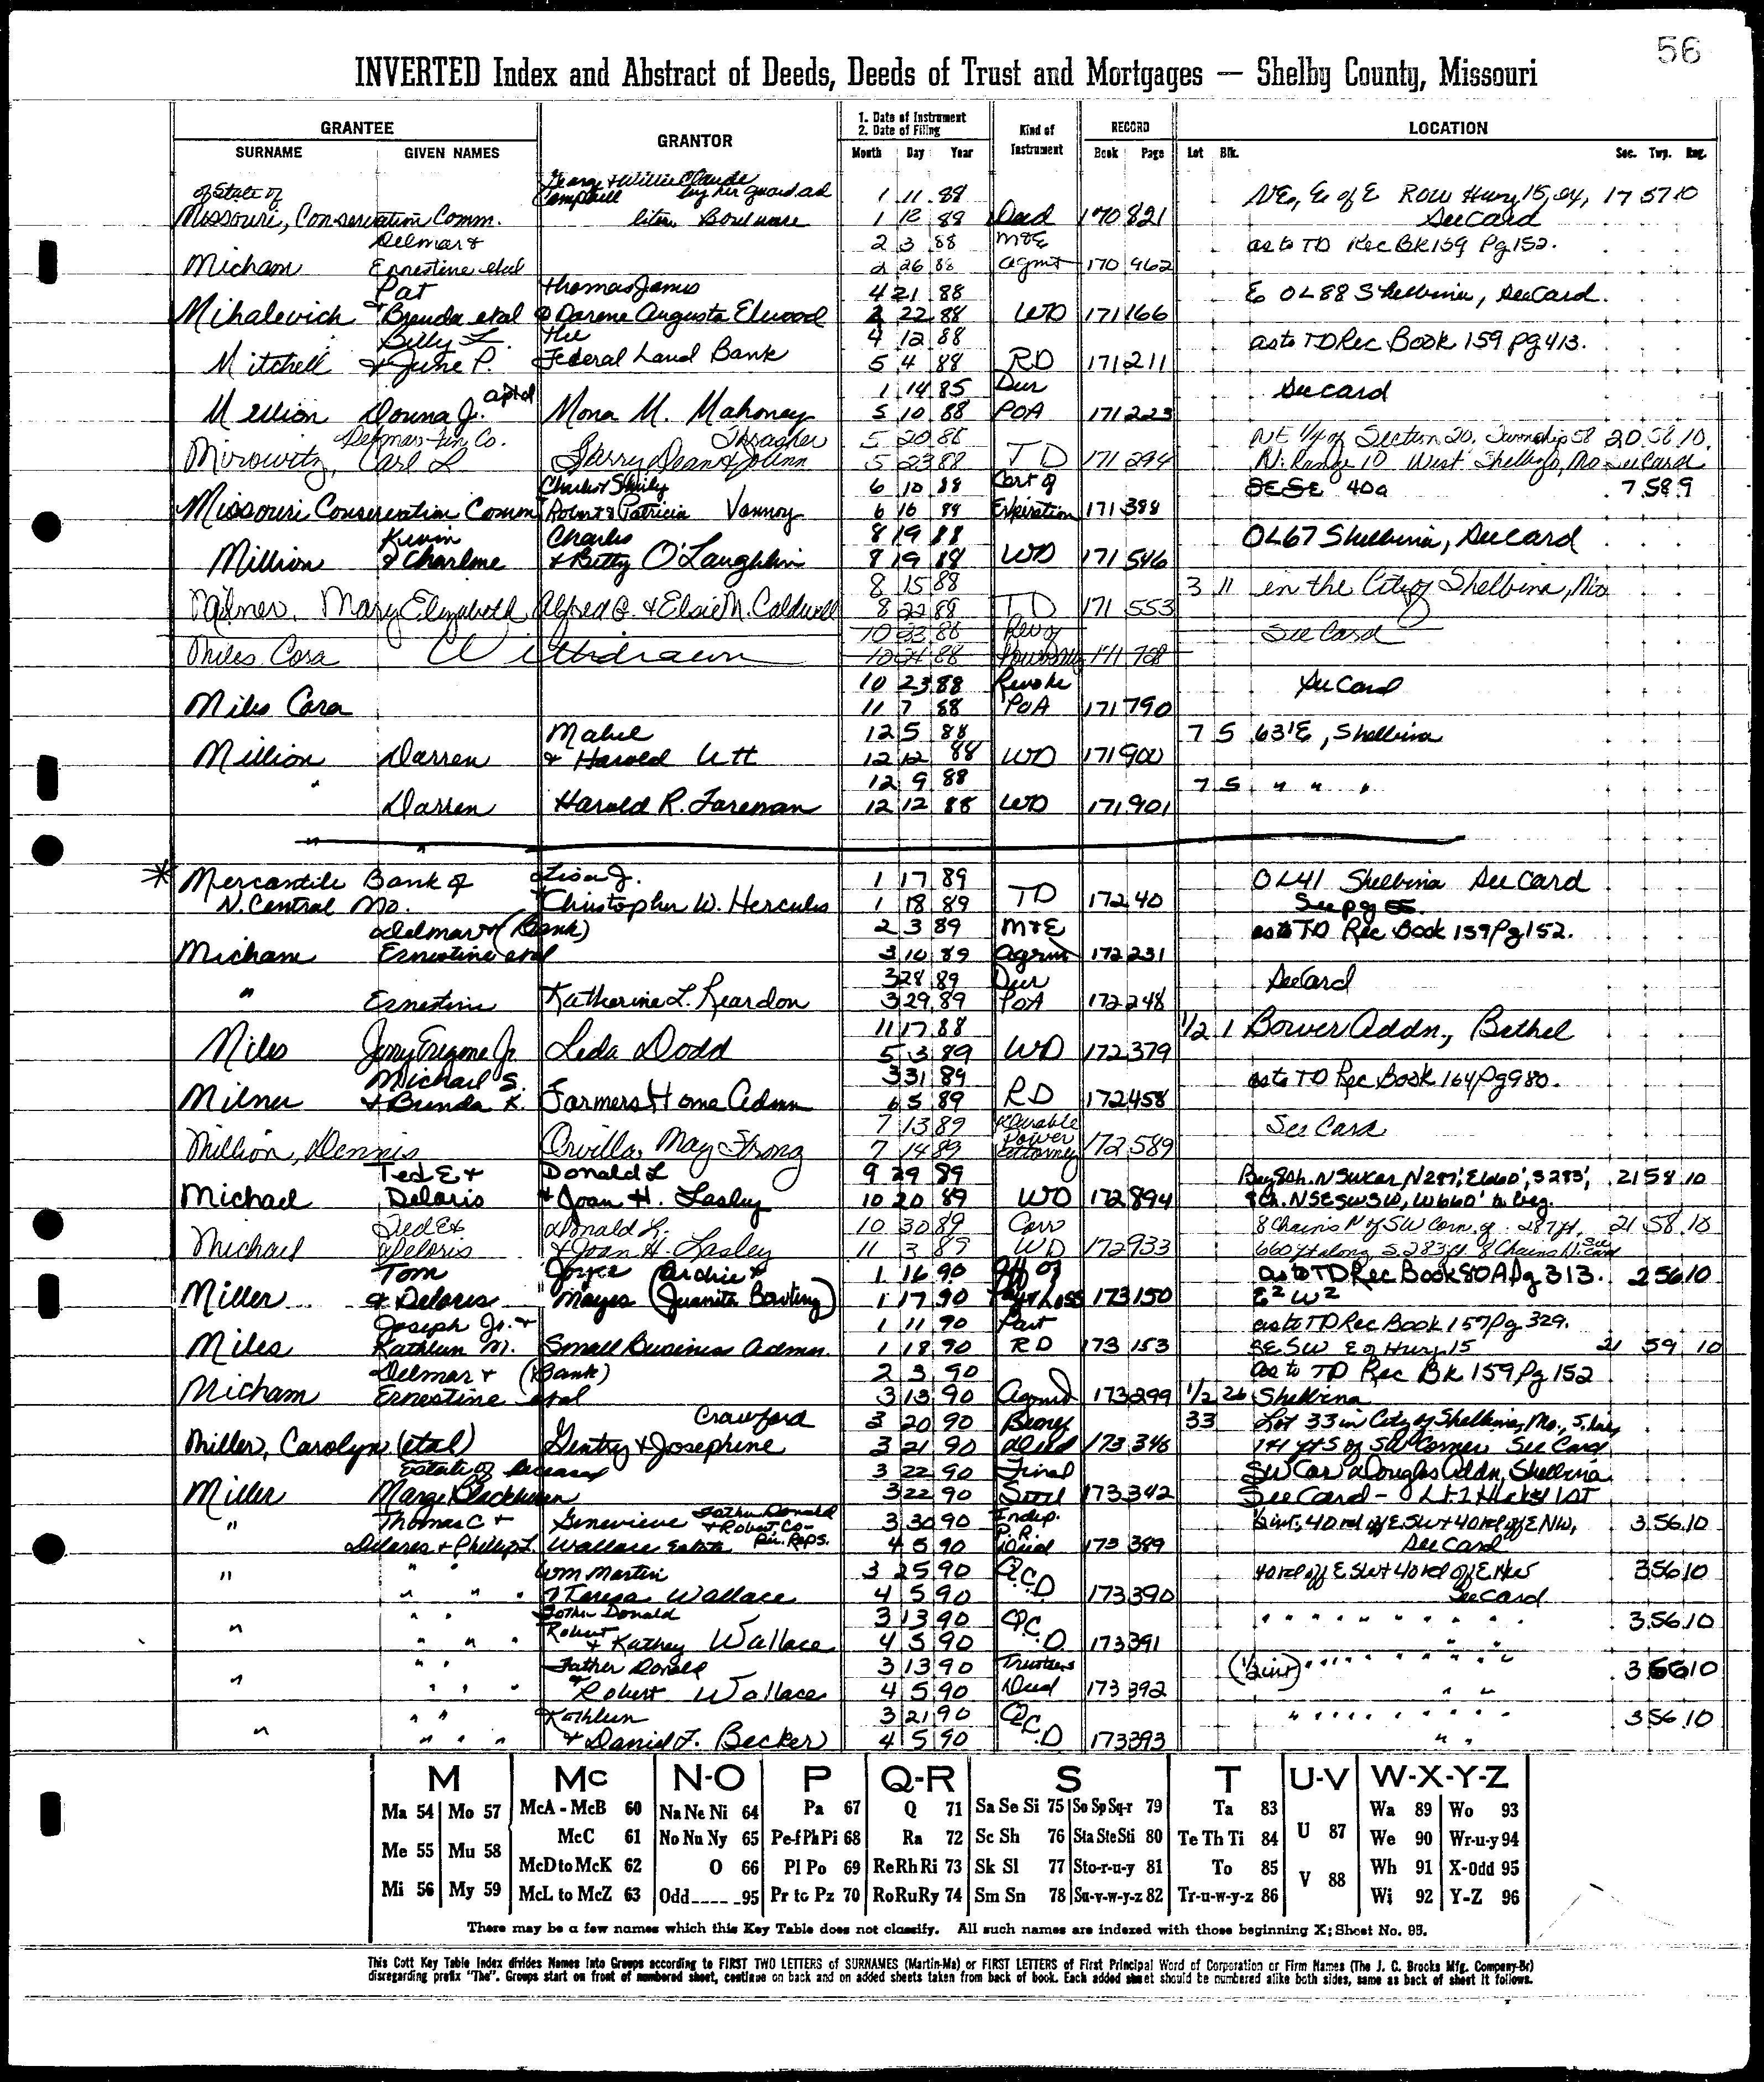 56
INVERTED Index and Abstract of Deeds, Deeds of Trust and Mortgages — Shelby County, Missouri
GRANTEE GRANTOR 1. Date of Instrument 2. Date of Filing Kind of Instrument RECORD LOCATION
SURNAME GIVEN NAMES Month Day Year Book Page Lot Blk. Sec. Twp. Rng.
of State of George & Willie Claude Campbell by her guard ad 1 11 88 NE, E of E ROW Hwy 15, 17 57 10
Missouri, Conservation Comm. litem Boulware 1 12 88 Deed 170 821 See Card
Delmar & 2 3 88 M&E as to TD Rec Bk 159 Pg 152.
Micham Ernestine etal 2 26 88 Agmt 170 962
Pat Thomas James 4 21 88 E OL 88 Shelbina, See Card.
Mihalevich & Brenda etal & Darene Augusta Elwood 22 88 WD 171 166
Billy L. The 4 12 88 as to TD Rec Book 159 Pg 413.
Mitchell & June P. Federal Land Bank 5 4 88 RD 171 211
aptd 1 14 85 Dur See card
Million Donna J. Mona M. Mahoney 5 10 88 POA 171 223
Delmar Fin Co. Thrasher 5 20 88 NE 1/4 of Section 20, Township 58 20 58 10.
Mirowitz, Carl L Larry Dean & JoAnn 5 23 88 TD 171 294 N. Range 10 West Shelby Co, Mo See Card
Charles & Shirley 6 10 88 Cert of SESE 40a 7 58 9
Missouri Conservation Comm Robert & Patricia Vannoy 6 16 88 Expiration 171 388
Kevin Charles 8 19 88 OL67 Shelbina, See card
Million & Charlene & Betty O'Laughlin 8 19 88 WD 171 546
8 15 88 3 11 in the City of Shelbina, Mo
Milner. Mary Elizabeth Alfred G. & Elsie M. Caldwell 8 22 88 TD 171 553
10 23 88 Rev of See Card
Miles Cora Withdrawn 10 24 88 171 708
10 23 88 Revoke See Card
Miles Cora 11 7 88 POA 171 790
Mabel 12 5 88 7 5 63'E, Shelbina
Million Darren & Harold Utt 12 12 88 WD 171 900
" 12 9 88 7 5 " " "
Darren Harold R. Foreman 12 12 88 WD 171 901
" "
* Mercantile Bank of Lisa J. 1 17 89 OL41 Shelbina See Card
N. Central Mo. & Christopher W. Hercules 1 18 89 TD 172 40 See pg 55.
Delmar & (Bank) 2 3 89 M&E as to TD Rec Book 159 Pg 152.
Micham Ernestine etal 3 10 89 Agrm 172 231
3 28 89 Dur See Card
" Ernestine Katherine L. Reardon 3 29 89 POA 172 248
11 17 88 1/2 1 Bower Addn., Bethel
Miles Jerry Eugene Jr Leda Dodd 5 3 89 WD 172 379
Michael S. 3 31 89 as to TD Rec Book 164 Pg 980.
Milner & Brenda K. Farmers Home Admn 6 5 89 RD 172 458
7 13 89 Durable See Card
Million, Dennis Orvilla May Strong 7 14 89 Power Attorney 172 589
Ted E & Donald L 9 29 89 Beg 8 Ch. N SW cor, N 287', E 660', S 283', 21 58 10
Michael Deloris & Joan H. Lasley 10 20 89 WD 172 894 8 Ch. N SE SW SW, W 660' to beg.
Ted E & Donald L. 10 30 89 Corr 8 Chains N of SW Corn. of 287 ft, 21 58 10
Michael Deloris & Joan H. Lasley 11 3 89 WD 172 933 660 ft along S. 283 ft 8 Chains N. See Card
Tom Joyce (Archie & 1 16 90 Aff of as to TD Rec Book 80A Pg 313. 2 56 10
Miller & Deloris Mayes (Juanita Bowling) 1 17 90 Pay & Loss 173 150 E² W²
Joseph Jr. & 1 11 90 Part as to TD Rec Book 157 Pg 329.
Miles Kathleen M. Small Business Admn. 1 18 90 RD 173 153 SE SW E of Hwy 15 21 59 10
Delmar & (Bank) 2 3 90 as to TD Rec Bk 159 Pg 152
Micham Ernestine etal 3 13 90 Agmt 173 299 1/2 26 Shelbina
Crawford 3 20 90 Benef 33 Lot 33 in City of Shelbina, Mo., S. line
Miller, Carolyn (etal) Gentry & Josephine 3 21 90 Deed 173 346 ft S of SW Corner See Card
Estate of Deceased 3 22 90 Final SW Cor Douglas Addn, Shelbina
Miller Marge Blackburn 3 22 90 Settl 173 342 See Card -
" Thomas C & Genevieve Father Donald & Robert, Co- 3 30 90 Indep. P.R. 1/2 int; 40 rd off E SW & 40 rd off E NW, 3 56 10
Delores & Phillip L. Wallace Estate Per. Reps. 4 5 90 Deed 173 389 See Card
" " " Wm Martin 3 25 90 Q.C.D 40 rd off E SW & 40 rd off E NW 3 56 10
" " " & Teresa Wallace 4 5 90 173 390 See Card
" " " Father Donald 3 13 90 Q.C.D " " " " " " " " " 3 56 10
" " " Robert & Kathey Wallace 4 5 90 173 391 " "
" " " Father Donald 3 13 90 Trustees (1/2 int) " " " " " " " " 3 56 10
" " " & Robert Wallace 4 5 90 Deed 173 392 " "
" " " Kathleen 3 21 90 Q.C.D " " " " " " " " " 3 56 10
" " " & Daniel F. Becker 4 5 90 173 393 " "
M Mc N-O P Q-R S T U-V W-X-Y-Z
Ma 54 Mo 57 McA - McB 60 Na Ne Ni 64 Pa 67 Q 71 Sa Se Si 75 So Sp Sq-r 79 Ta 83 U 87 Wa 89 Wo 93
Me 55 Mu 58 McC 61 No Nu Ny 65 Pe-f Ph Pi 68 Ra 72 Sc Sh 76 Sta Ste Sti 80 Te Th Ti 84 We 90 Wr-u-y 94
McD to McK 62 O 66 Pl Po 69 Re Rh Ri 73 Sk Sl 77 Sto-r-u-y 81 To 85 V 88 Wh 91 X-Odd 95
Mi 56 My 59 McL to McZ 63 Odd 95 Pr to Pz 70 Ro Ru Ry 74 Sm Sn 78 Su-v-w-y-z 82 Tr-u-w-y-z 86 Wi 92 Y-Z 96
There may be a few names which this Key Table does not classify. All such names are indexed with those beginning X; Sheet No. 95.
This Cott Key Table Index divides Names Into Groups according to FIRST TWO LETTERS of SURNAMES (Martin-Ma) or FIRST LETTERS of First Principal Word of Corporation or Firm Names (The J. C. Brooks Mfg. Company-Br)
disregarding prefix "The". Groups start on front of numbered sheet, continue on back and on added sheets taken from back of book. Each added sheet should be numbered alike both sides, same as back of sheet it follows.